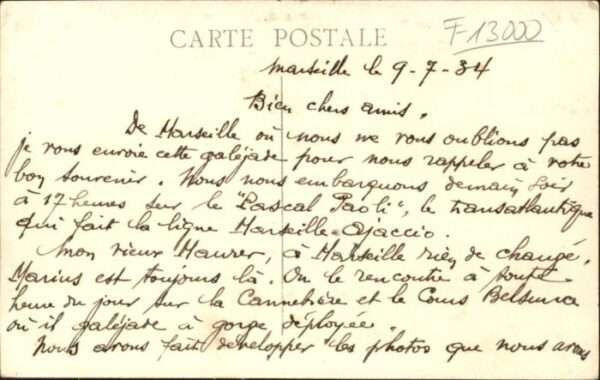 CARTE POSTALE
F-13000
Marseille le 9-7-34
Bien chers amis.
De Marseille où nous ne vous oublions pas
je vous envoie cette galéjade pour nous rappeler à votre
bon souvenir. Nous nous embarquons demain soir
à 17 heures sur le "Pascal Paoli", le transatlantique
qui fait la ligne Marseille-Ajaccio.
Mon vieux Maurer, à Marseille rien de changé,
Marius est toujours là. On le rencontre à toute
heure du jour sur la Cannebière et le Cours Belsunce
où il galéjade à gorge déployée.
Nous avons fait développer les photos que nous avons